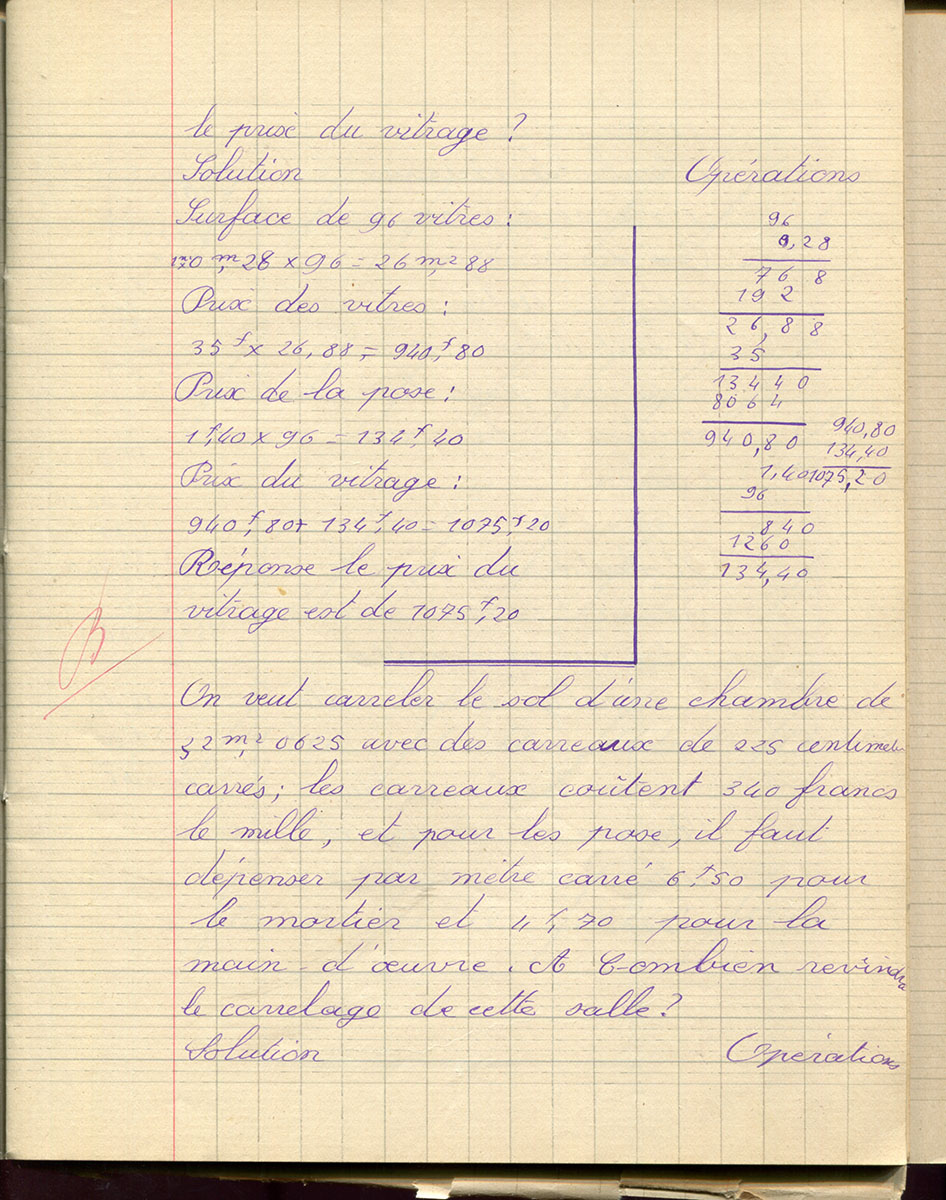 le prix du vitrage ?
Solution
Opérations
Surface de 96 vitres :
0 m² 28 x 96 = 26 m² 88
Prix des vitres :
35 f x 26,88 = 940 f, 80
Prix de la pose :
1 f, 40 x 96 = 134 f, 40
Prix du vitrage :
940 f, 80 + 134 f, 40 = 1075 f, 20
Réponse le prix du
vitrage est de 1075 f, 20
96
0,28
768
192
26,88
35
13440
8064
940,80
1,40
96
840
1260
134,40
940,80
134,40
1075,20
B
On veut carreler le sol d'une chambre de
32 m² 0625 avec des carreaux de 225 centimètr
carrés ; les carreaux coûtent 340 francs
le mille, et pour les pose, il faut
dépenser par mètre carré 6 f 50 pour
le mortier et 4 f, 70 pour la
main-d'œuvre. A Combien reviendra
le carrelage de cette salle ?
Solution
Opérations